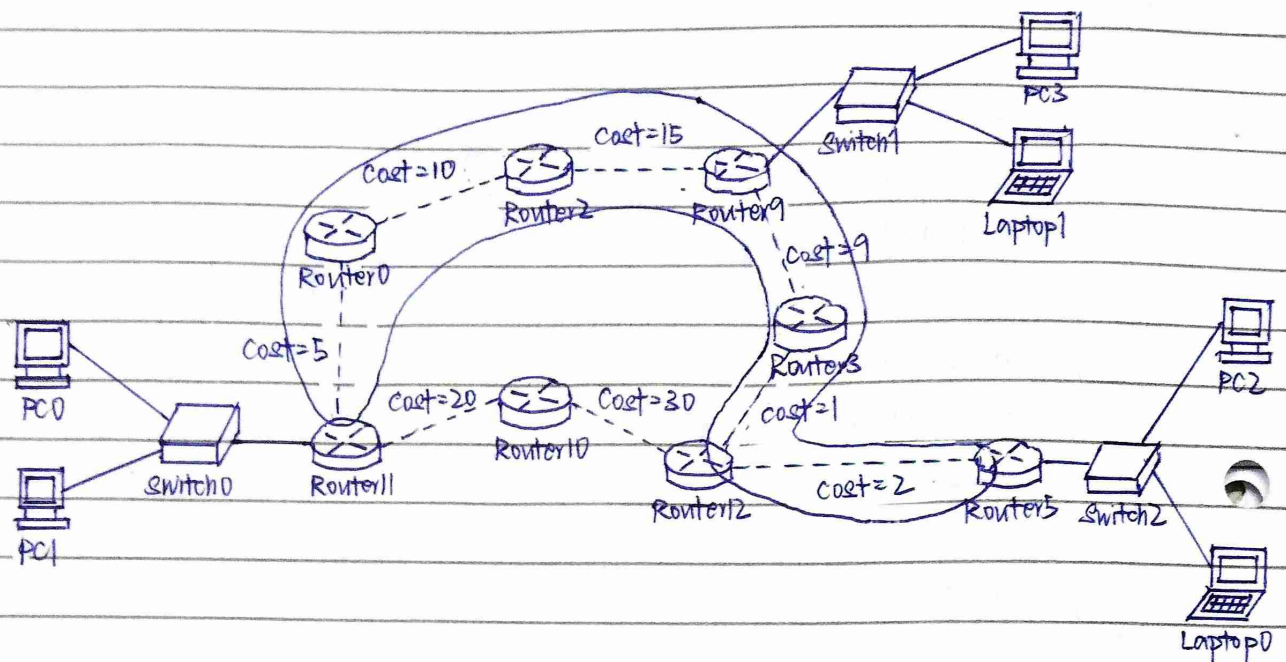 PC3
Switch1
Cost=15
Cost=10
Router2
Router9
Laptop1
Router0
Cost=9
Cost=5
Router3
PC2
PC0
Cost=20
Cost=30
Cost=1
Router10
Switch0
Router11
Router12
Cost=2
Router5
Switch2
PC1
Laptop0